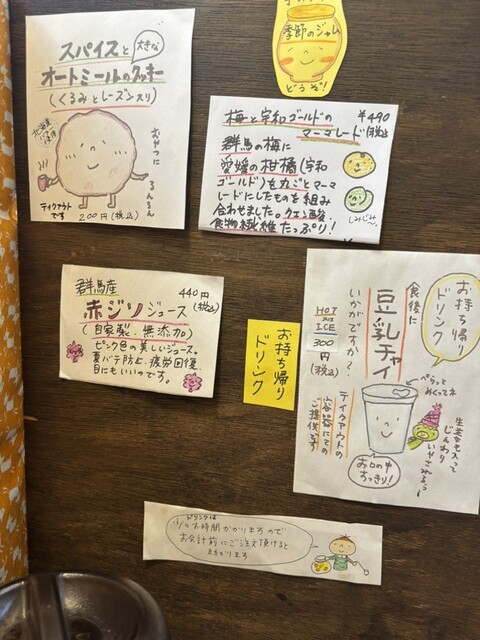 スパイスと大きな
オートミールのクッキー
(くるみとレーズン入り)
おやつに
るんるん
テイクアウト
です
200円(税込)
季節のジャム
どうぞ!
梅と宇和ゴールドの
マーマレード
¥490
(税込)
群馬の梅に
愛媛の柑橘(宇和
ゴールド)を丸ごとマーマ
レードにしたものを組み
合わせました。クエン酸、
食物繊維たっぷり!
しみじみ〜。
群馬産
440円
(税込)
赤ジソジュース
(自家製・無添加)
ピンク色の美しいジュース。
夏バテ防止、疲労回復、
目にもいいのです。
お持ち帰り
ドリンク
お持ち帰り
ドリンク
食後に
豆乳チャイ
いかがですか?
HOT
ICE
300
円
(税込)
テイクアウトの
容器にての
ご提供です
ぺらっと
めくってネ
生姜も入って
じんわり
いやされるぅ〜
お口の中
すっきり!
ドリンクは
少々お時間かかりますので
お会計前にご注文頂けると
助かります